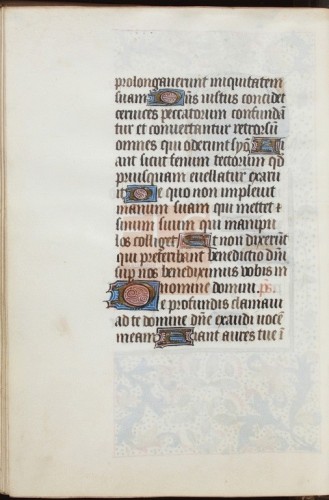 prolongaverunt iniquitatem
suam Dñs iustus concidet
cervices peccatorum confundã
tur et convertantur retrorsũ
omnes qui oderunt syõ Fi
ant sicut fenum tectorum qd
priusquam evellatur exaru
it De quo non implevit
manum suam qui mettet ⁊
sinum suum qui manipu
los colliget Et non dixerũt
qui preteribant benedictio dñi
sup vos benediximus vobis in
nomine domini. ps.
De profundis clamavi
ad te domine dñe exaudi vocẽ
meam Fiant aures tue ĩ